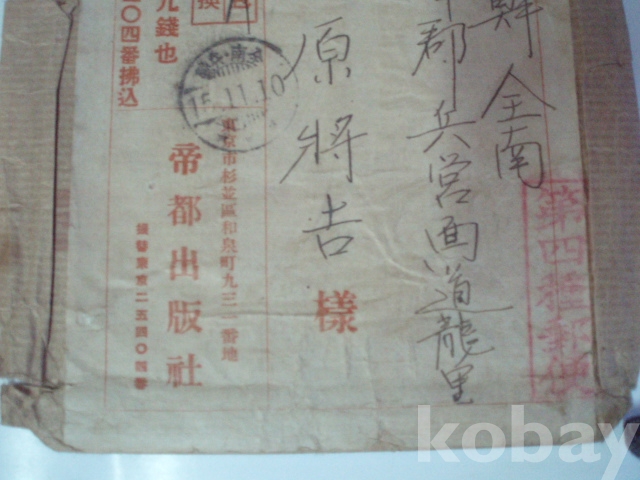 鮮全南
郡兵営面道龍里
原將吉
樣
第四種郵便
15.11.10
東京市杉並區和泉町九三二番地
帝都出版社
振替東京二五四〇四番
換
九錢也
〇四番拂込
kobay